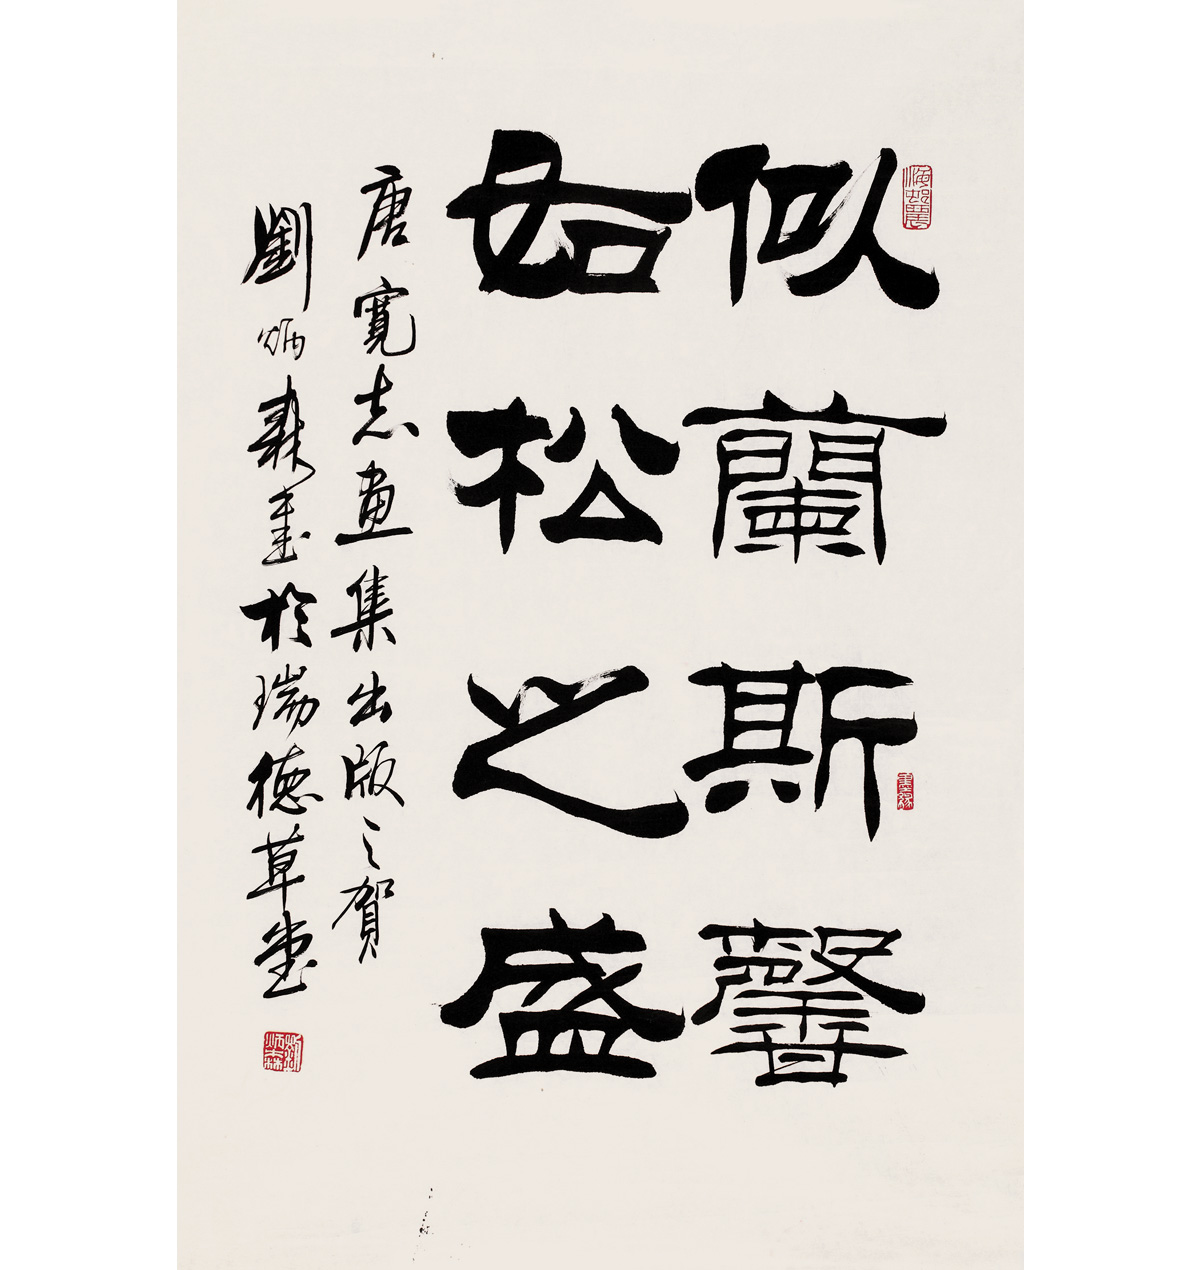 似蘭斯馨
如松之盛
唐寬志畫集出版之賀
劉炳森書於瑞德草堂
劉炳森